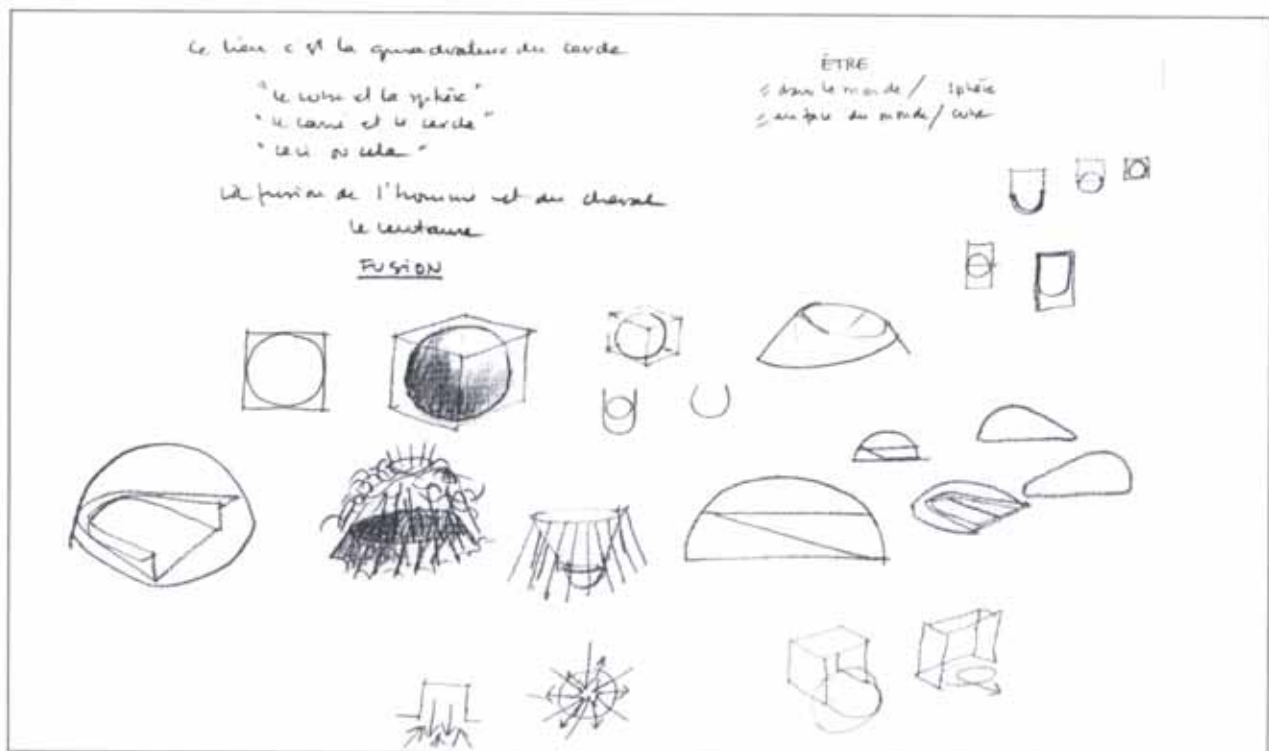 Le lieu c'est la quadrature du cercle
"le cube et la sphère"
"le carré et le cercle"
"ceci ou cela"
La fusion de l'homme et du cheval
le centaure
FUSION
ÊTRE
dans le monde / sphère
en face du monde / cube